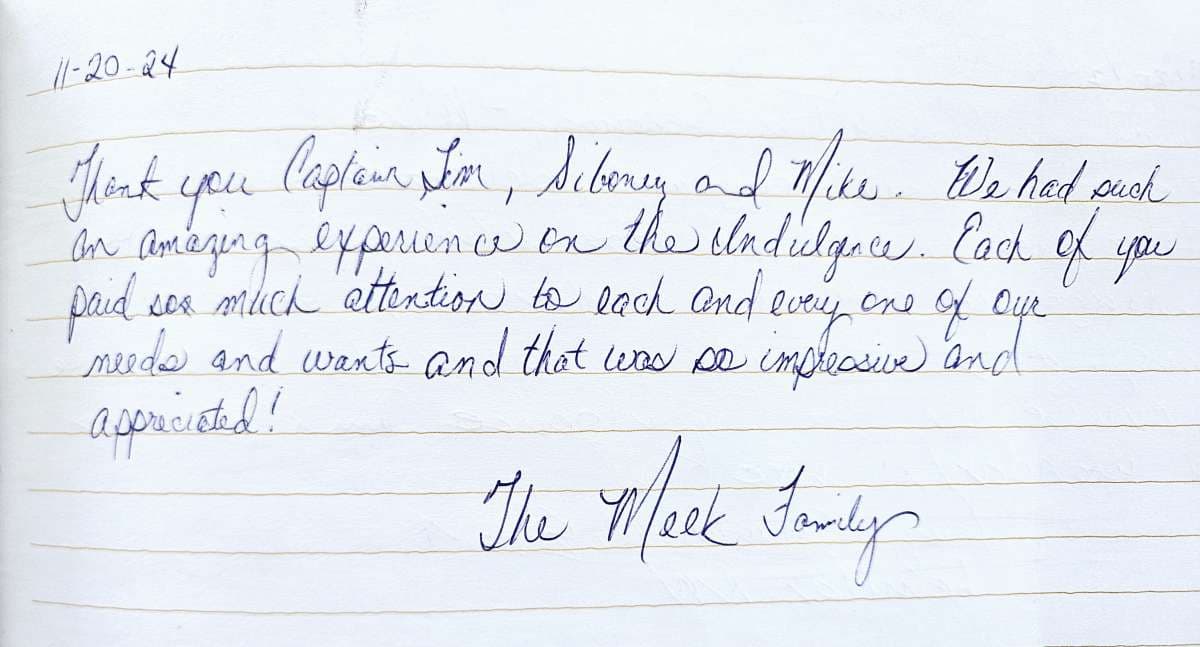 11-20-24
Thank you Captain Jim, Siboney and Mike. We had such
an amazing experience on the Indulgence. Each of you
paid soo much attention to each and every one of our
needs and wants and that was so impressive and
appreciated!
The Meek Family